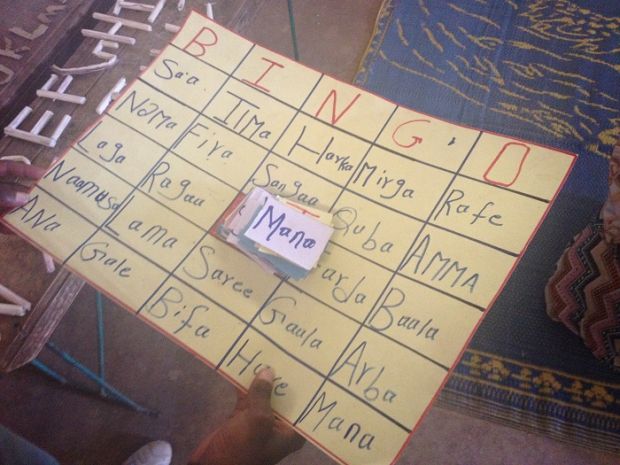 B I N G . O
Sa'a. Tima Harka Mirga Rafe
Nama Fira Sangaa Quba AMMA
Laga Ragaa Mana arda Baala
Naamusa Lama Saree Giaula Arba
ANa Giale Bifa Mana